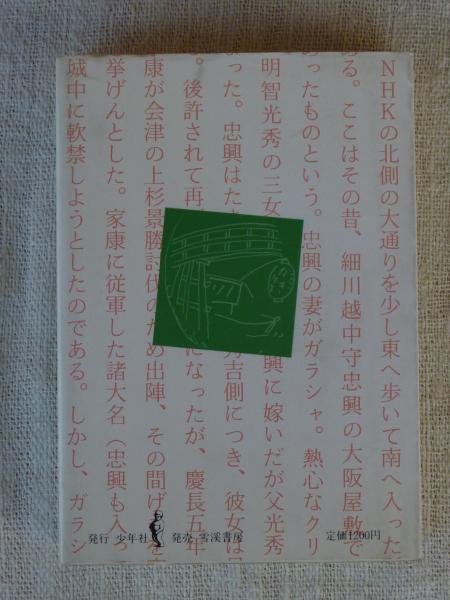 NHKの北側の大通りを少し東へ歩いて南へ入った
ある。ここはその昔、細川越中守忠興の大阪屋敷で
あったものという。忠興の妻がガラシャ。熱心なクリ
明智光秀の三女 興に嫁いだが父光秀
った。忠興はたま 吉側につき、彼女は
。後許されて再 になったが、慶長五年
康が会津の上杉景勝討伐のため出陣、その間げ
挙げんとした。家康に従軍した諸大名（忠興も入っ
城中に軟禁しようとしたのである。しかし、ガラシ
発行 少年社 発売 雪溪書房 定価1200円